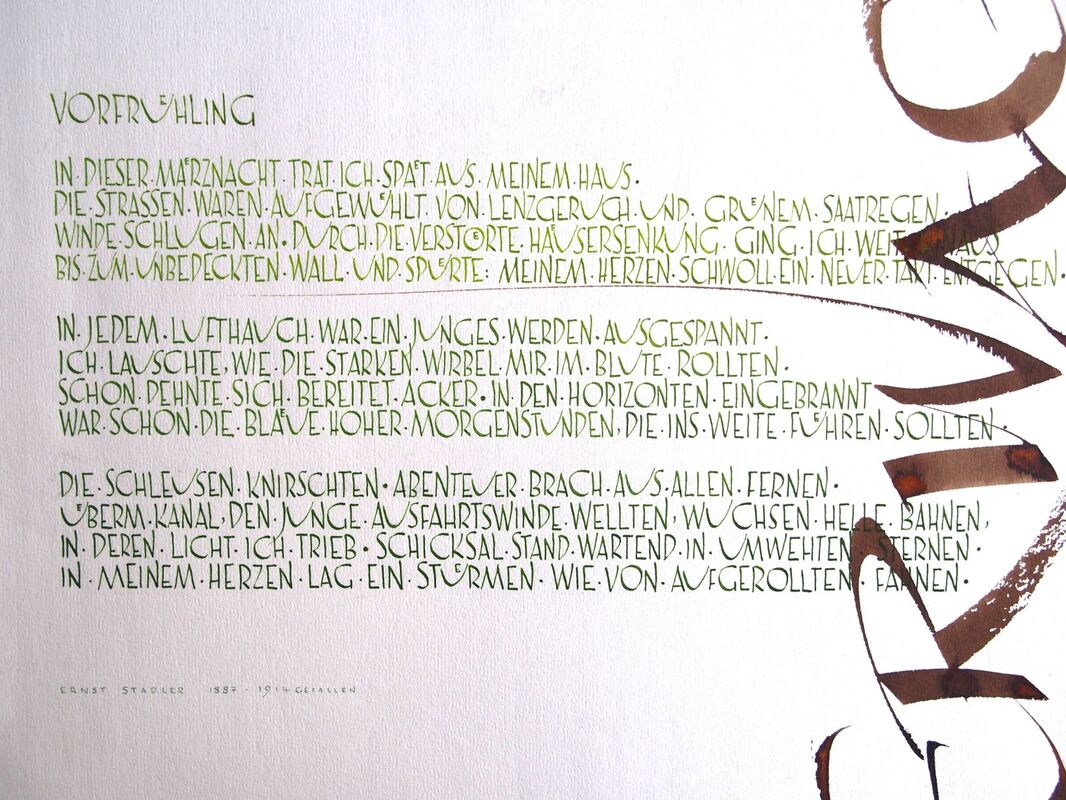 VORFRÜHLING
IN·DIESER·MÄRZNACHT·TRAT·ICH·SPÄT·AUS·MEINEM·HAUS·
DIE·STRASSEN·WAREN·AUFGEWÜHLT·VON·LENZGERUCH·UND·GRÜNEM·SAATREGEN·
WINDE·SCHLUGEN·AN·DURCH·DIE·VERSTÖRTE·HÄUSERSENKUNG·GING·ICH·WEIT HINAUS
BIS·ZUM·UNBEDECKTEN·WALL·UND·SPÜRTE: MEINEM·HERZEN·SCHWOLL·EIN·NEUER·TAKT·ENTGEGEN·
IN·JEDEM·LUFTHAUCH·WAR·EIN·JUNGES·WERDEN·AUSGESPANNT·
ICH·LAUSCHTE, WIE·DIE·STARKEN·WIRBEL·MIR·IM·BLUTE·ROLLTEN·
SCHON·DEHNTE·SICH·BEREITET·ACKER·IN·DEN·HORIZONTEN·EINGEBRANNT
WAR·SCHON·DIE·BLÄUE·HOHER·MORGENSTUNDEN, DIE·INS·WEITE·FÜHREN·SOLLTEN·
DIE·SCHLEUSEN·KNIRSCHTEN·ABENTEUER·BRACH·AUS·ALLEN·FERNEN·
ÜBERM·KANAL, DEN·JUNGE·AUSFAHRTSWINDE·WELLTEN, WUCHSEN·HELLE·BAHNEN,
IN·DEREN·LICHT·ICH·TRIEB·SCHICKSAL·STAND·WARTEND·IN·UMWEHTEN·STERNEN·
IN·MEINEM·HERZEN·LAG·EIN·STÜRMEN·WIE·VON·AUFGEROLLTEN·FAHNEN·
ERNST STADLER 1887 - 1914 GEFALLEN